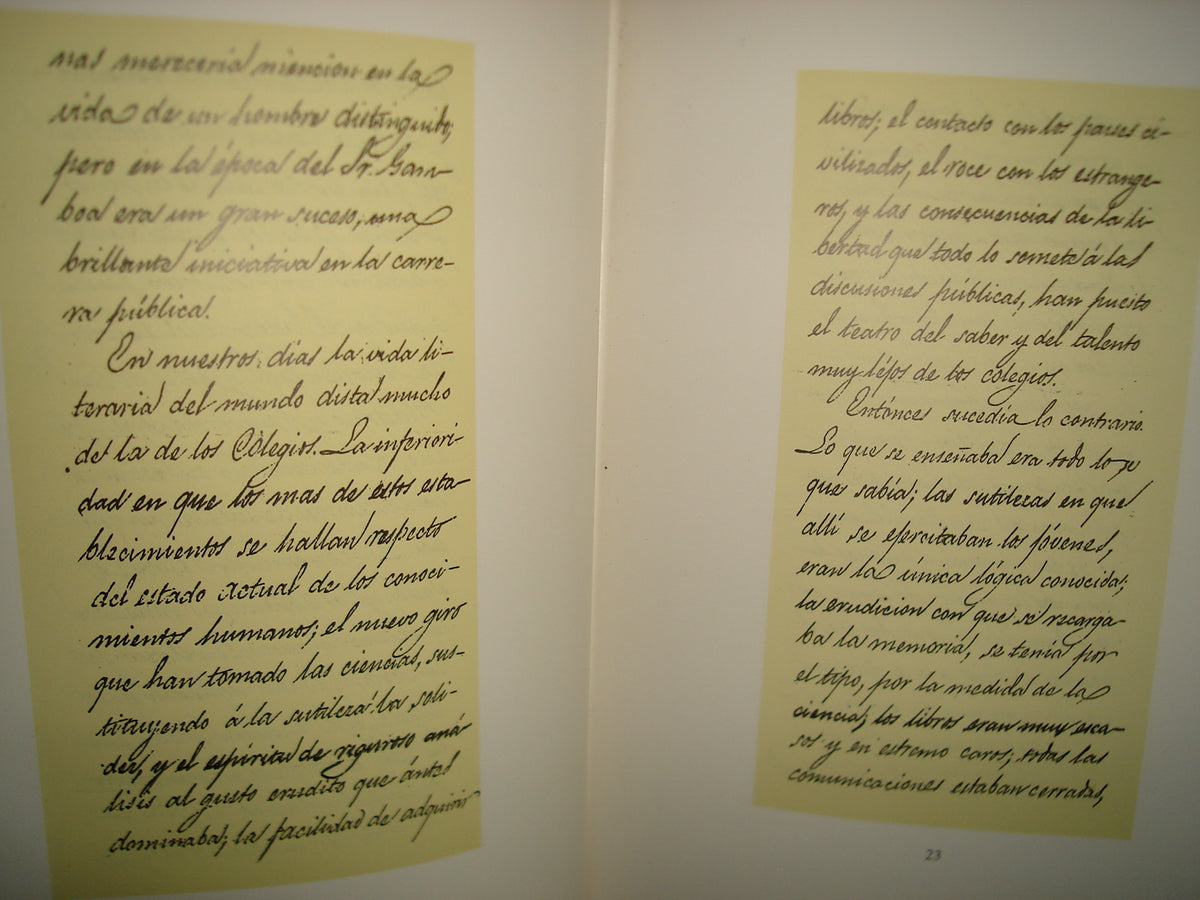 nas mereceria miencion en la
vida de un hombre distinguido;
pero en la época del Sr. Gam-
boa era un gran suceso, una
brillante iniciativa en la carre-
ra pública.
En nuestros dias la vida li-
teraria del mundo dista mucho
de la de los Colegios. La inferiori-
dad en que los mas de estos esta-
blecimientos se hallan respecto
del estado actual de los conoci-
mientos humanos; el nuevo giro
que han tomado las ciencias, sus-
tituyendo á la sutileza la soli-
dez, y el espíritu de riguroso aná
lisis al gusto erudito que ántes
dominaba; la facilidad de adquirir
libros; el contacto con los paises ci-
vilizados, el roce con los estrange-
ros, y las consecuencias de la li
bertad que todo lo somete á las
discusiones públicas, han puesto
el teatro del saber y del talento
muy léjos de los colegios.
Entónces sucedia lo contrario.
Lo que se enseñaba era todo lo
que sabía; las sutilezas en que
allí se ejercitaban los jóvenes,
eran la única lógica conocida;
la erudicion con que se recarga-
ba la memoria, se tenía por
el tipo, por la medida de la
ciencia; los libros eran muy esca-
sos y en estremo caros; todas las
comunicaciones estaban cerradas,
23